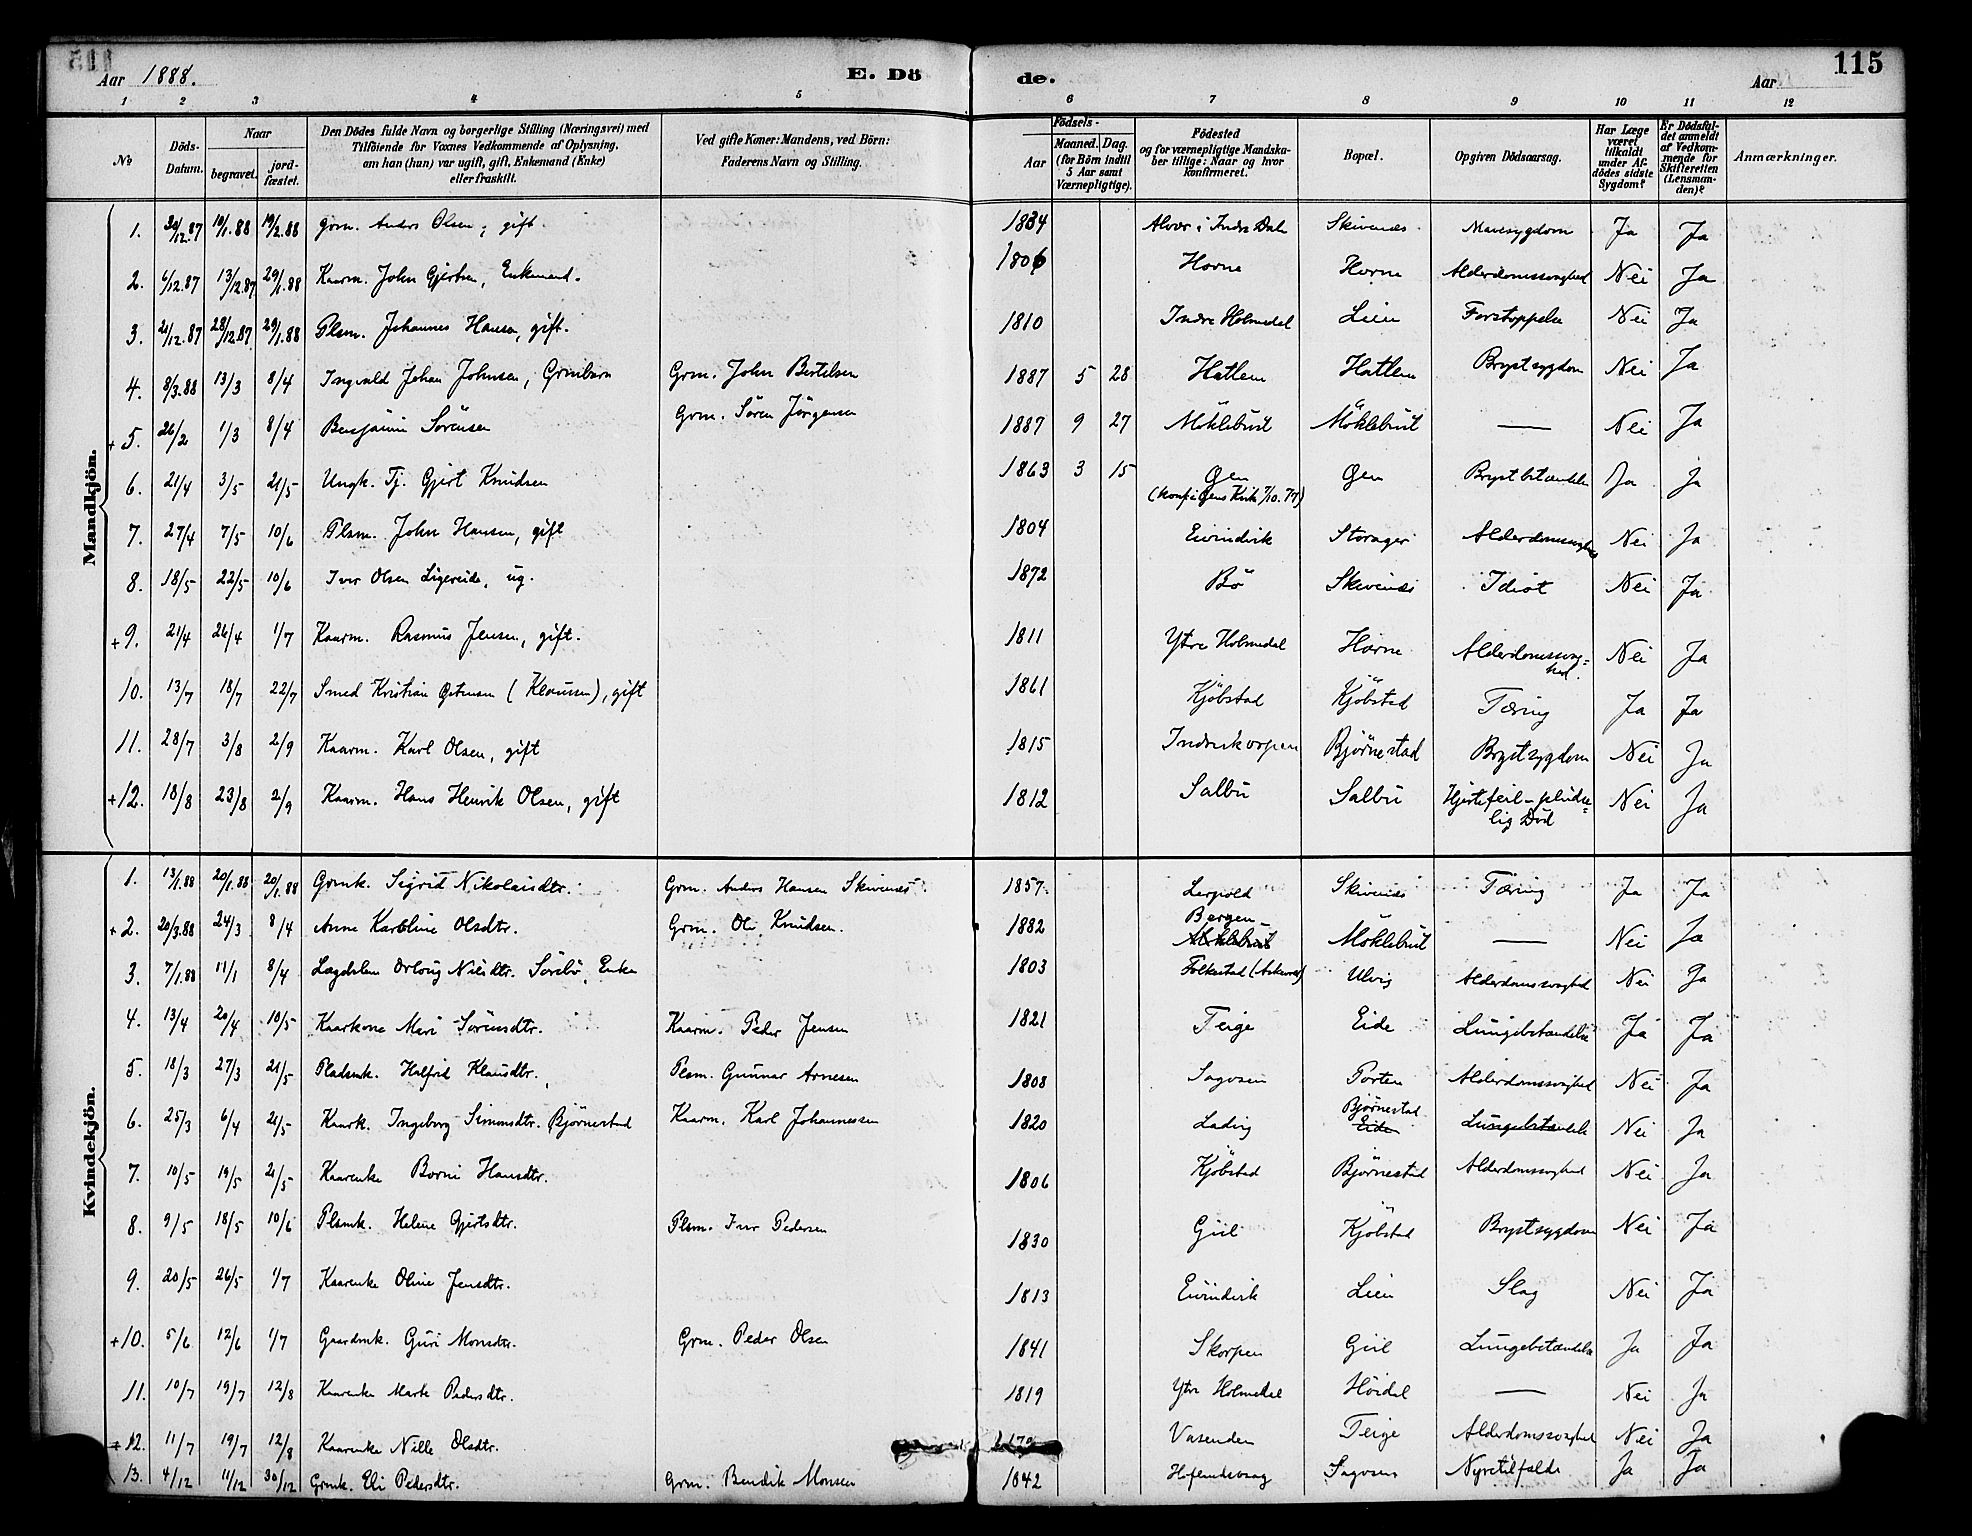 115
Aar 1888.
E. Dö
de.
Aar
115
1 2 3 4 5 6 7 8 9 10 11 12
No
Döds-Datum.
Naar
begravet.
jord-fæstet.
Den Dödes fulde Navn og borgerlige Stilling (Næringsvei) med
Tilföiende for Voxnes Vedkommende af Oplysning,
om han (hun) var ugift, gift, Enkemand (Enke)
eller fraskilt.
Ved gifte Koner: Mandens, ved Börn:
Faderens Navn og Stilling.
Födsels-
Aar
Maaned. Dag.
(for Börn indtil
5 Aar samt
Værnepligtige).
Födested
og for værnepligtige Mandska-
ber tillige: Naar og hvor
konfirmeret.
Bopæl.
Opgiven Dödsaarsag.
Har Læge
været
tilkaldt
under Af-
dödes sidste
Sygdom?
Er Dödsfal-
det anmeldt
af Vedkom-
mende for
Skifteretten
(Lensman-
den)?
Anmærkninger.
Mandkjön.
1. 30/12.87 19/1.88 19/2.88 Grm. Anders Olsen, gift. 1834 i Indre Dale Skivenes Mavesygdom Ja Ja
2. 6/12.87 13/12.87 29/1.88 Kaarm. John Gjertsen, Enkemand. 1806 Horne Horne Alderdomssvaghed Nei Ja
3. 21/12.87 28/12.87 29/1.88 Plsm. Johannes Hansen, gift. 1810 Indre Holmedal Lien Forstoppelse Nei Ja
4. 8/3.88 13/3 8/4 Ingvald Johan Johnsen, Grmbarn Grm. John Bertelsen 1887 5 28 Hatlem Hatlem Brystsygdom Nei Ja
+ 5. 26/2 1/3 8/4 Benjamin Sörensen Grm. Sören Jörgensen 1887 9 27 Möklebust Möklebust — Nei Ja
6. 21/4 3/5 21/5 Ungk. Tj. Gjert Knudsen 1863 3 15 Øen Øen Brystbetændelse Ja Ja
(konf. i Øens Kirk 7/10.77)
7. 27/4 7/5 10/6 Plsm. John Hansen, gift 1804 Eivindvik Storager Alderdomssvaghed Nei Ja
8. 18/5 22/5 10/6 Iver Olsen Ligereide, ug. 1872 Bö Skivenes Idiot Nei Ja
+ 9. 21/4 26/4 1/7 Kaarm. Rasmus Jensen, gift. 1811 Ytre Holmedal Horne Alderdomssvag=
hed.
Nei Ja
10. 13/7 18/7 22/7 Smed Kristian (Klausen), gift 1861 Kjöbstad Kjöbstad Tæring Ja Ja
11. 28/7 3/8 2/9 Kaarm. Karl Olsen, gift 1815 Indreskorpen Björnestad Brystsygdom Nei Ja
+ 12. 18/8 23/8 2/9 Kaarm. Hans Henrik Olsen, gift 1812 Salbu Salbu Hjertefeil – pludse=
lig Död
Nei Ja
Kvindekjön.
1. 13/1.88 20/1.88 20/1.88 Grmk. Sigrid Nikolaisdtr. Grm. Anders Hansen Skivenes 1857. Lerpold Skivenes Tæring Ja Ja
+ 2. 20/3.88 24/3 8/4 Anne Karoline Olsdtr. Grm. Ole Knudsen. 1882 Bergen
Möklebust Möklebust — Nei Ja
3. 7/1.88 11/1 8/4 Nilsdtr. Sörebö, Enke 1803 Folkestad (Askvold) Ulvig Alderdomssvaghed Nei Ja
4. 13/4 20/4 10/5 Kaarkone Mari Sörensdtr. Kaarm. Peder Jensen 1821 Teige Eide Lungebetændelse Ja Ja
5. 18/3 27/3 21/5 Pladsmk. Halfrid Klausdtr. Plsm. Gunnar Arnesen 1808 Sagosen Porten Alderdomssvaghed Nei Ja
6. 25/3 6/4 21/5 Kaark. Ingeborg Simonsdtr. Björnestad Kaarm. Karl Johannessen 1820 Ladvig Björnestad
Eide Lungebetændelse Nei Ja
7. 10/5 19/5 21/5 Kaarenke Borni Hansdtr. 1806 Kjöbstad Björnestad Alderdomssvaghed Nei Ja
8. 9/5 18/5 10/6 Plsmk. Helene Gjertsdtr. Plsm. Iver Pedersen 1830 Giil Kjöbstad Brystsygdom Nei Ja
9. 20/5 26/5 1/7 Kaarenke Oline Jensdtr. 1813 Eivindvik Lien Slag Nei Ja
+ 10. 5/6 12/6 1/7 Gaardmk. Guri Monsdtr. Grm. Peder Olsen 1841 Skorpen Giil Lungebetændelse Ja Ja
11. 10/7 19/7 12/8 Kaarenke Marte Pedersdtr. 1819 Ytre Holmedal Höidal — Nei Ja
+ 12. 11/7 19/7 12/8 Kaarenke Nille Olsdtr. Vasenden Teige Alderdomssvaghed Nei Ja
13. 4/12 11/12 30/12 Grmk. Eli Pedersdtr. Grm. Bendik Monsen 1842 Sagosen Nyretilfælde Ja Ja